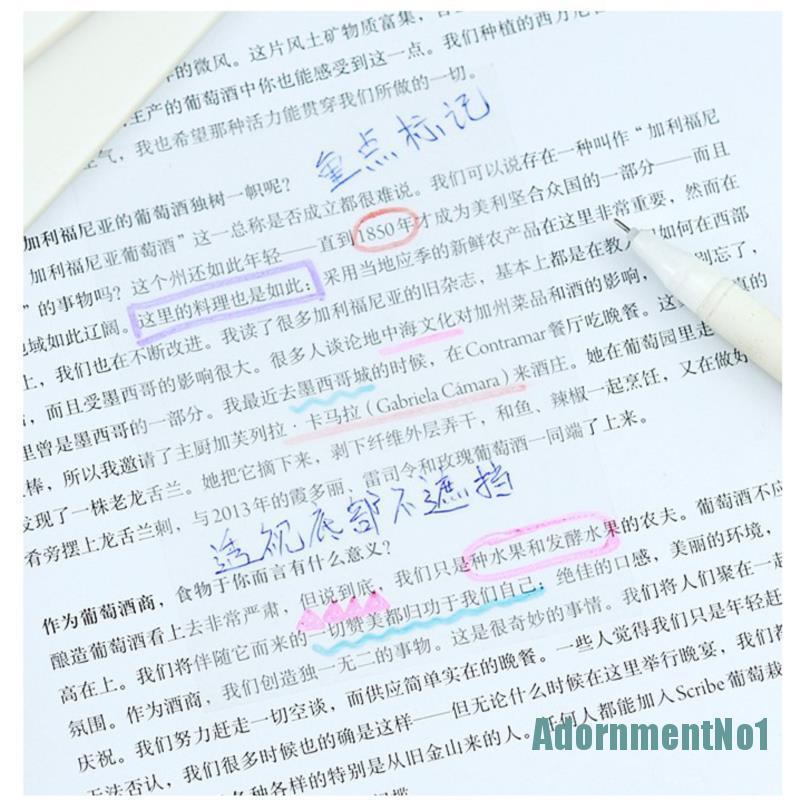 的微风。这片风土矿物质富集，
主产的葡萄酒中你也能感受到这一点。我们种植的西方
气，我也希望那种活力能贯穿我们所做的一切。
重点标记
加利福尼亚的葡萄酒独树一帜呢？
加利福尼亚葡萄酒”这一总称是否成立都很难说。我们可以说存在一种叫作“加利福尼
”的事物吗？这个州还如此年轻——直到1850年才成为美利坚合众国的一部分——而且
地域如此辽阔。这里的料理也是如此：采用当地应季的新鲜农产品在这里非常重要，然而在
上，我们也在不断改进。我读了很多加利福尼亚的旧杂志，基本上都是在教人们如何在西部
，而且受墨西哥的影响很大。很多人谈论地中海文化对加州菜品和酒的影响，别忘了，
里曾是墨西哥的一部分。我最近去墨西哥城的时候，在Contramar餐厅吃晚餐。真的
棒，所以我邀请了主厨加芙列拉·卡马拉（Gabriela Cámara）来酒庄。她在葡萄园里走
发现了一株老龙舌兰。她把它摘下来，剥下纤维外层弄干，和鱼、辣椒一起烹饪，又在做好
看旁摆上龙舌兰刺，与2013年的霞多丽、雷司令和玫瑰葡萄酒一同端了上来。
透视底部不遮挡
作为葡萄酒商，食物于你而言有什么意义？
酿造葡萄酒看上去非常严肃，但说到底，我们只是种水果和发酵水果的农夫。葡萄酒不应
高在上。我们将伴随它而来的一切赞美都归功于我们自己：绝佳的口感，美丽的环境，
氛围。作为酒商，我们创造独一无二的事物。这是很奇妙的事情。我们将人们聚在一起
庆祝。我们努力赶走一切空谈，而供应简单实在的晚餐。一些人觉得我们只是年轻赶
无法否认，我们很多时候也的确是这样——但无论什么时候在这里举行晚宴，我们都
各种各样的特别是从旧金山来的人。任何人都能加入Scribe葡萄栽
AdornmentNo1